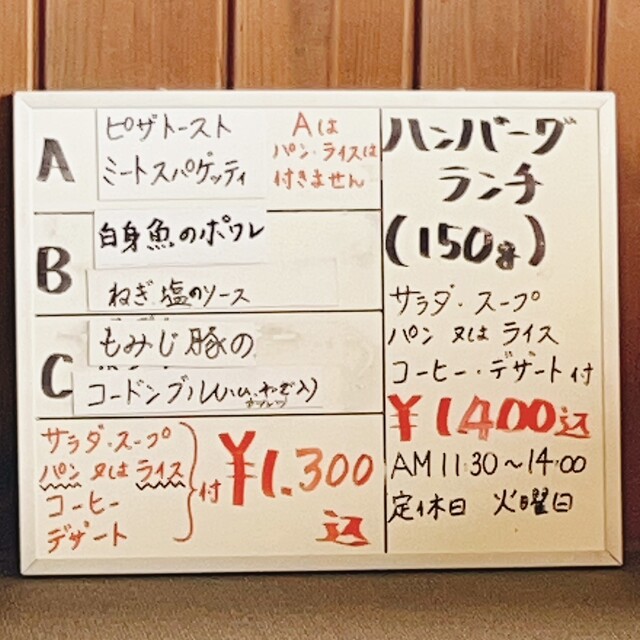 A
ピザトースト
ミートスパゲッティ
Aは
パン・ライスは
付きません
B
白身魚のポワレ
ねぎ塩のソース
C
もみじ豚の
コードンブル
サラダ・スープ
パン又はライス
コーヒー
デザート
付
¥1.300
込
ハンバーグ
ランチ
(150g)
サラダ・スープ
パン又はライス
コーヒー・デザート付
¥1400込
AM 11:30〜14:00
定休日 火曜日